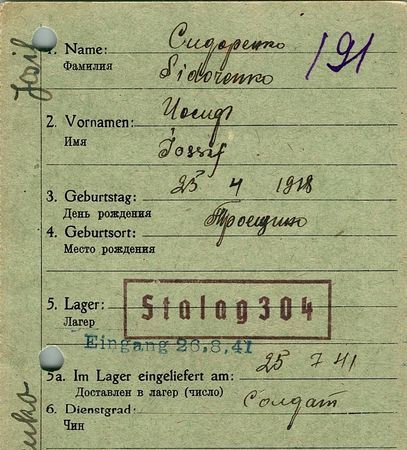 Josif
1. Name: Сидоренко
Фамилия Sidorenko
191
2. Vornamen: Иосиф
Имя Jossif
3. Geburtstag: 25 4 1918
День рождения
4. Geburtsort: Троещино
Место рождения
5. Lager: Stalag 304
Лагер
Eingang 26.8.41
5a. Im Lager eingeliefert am: 25 7 41
Доставлен в лагер (число)
6. Dienstgrad: Солдат
Чин